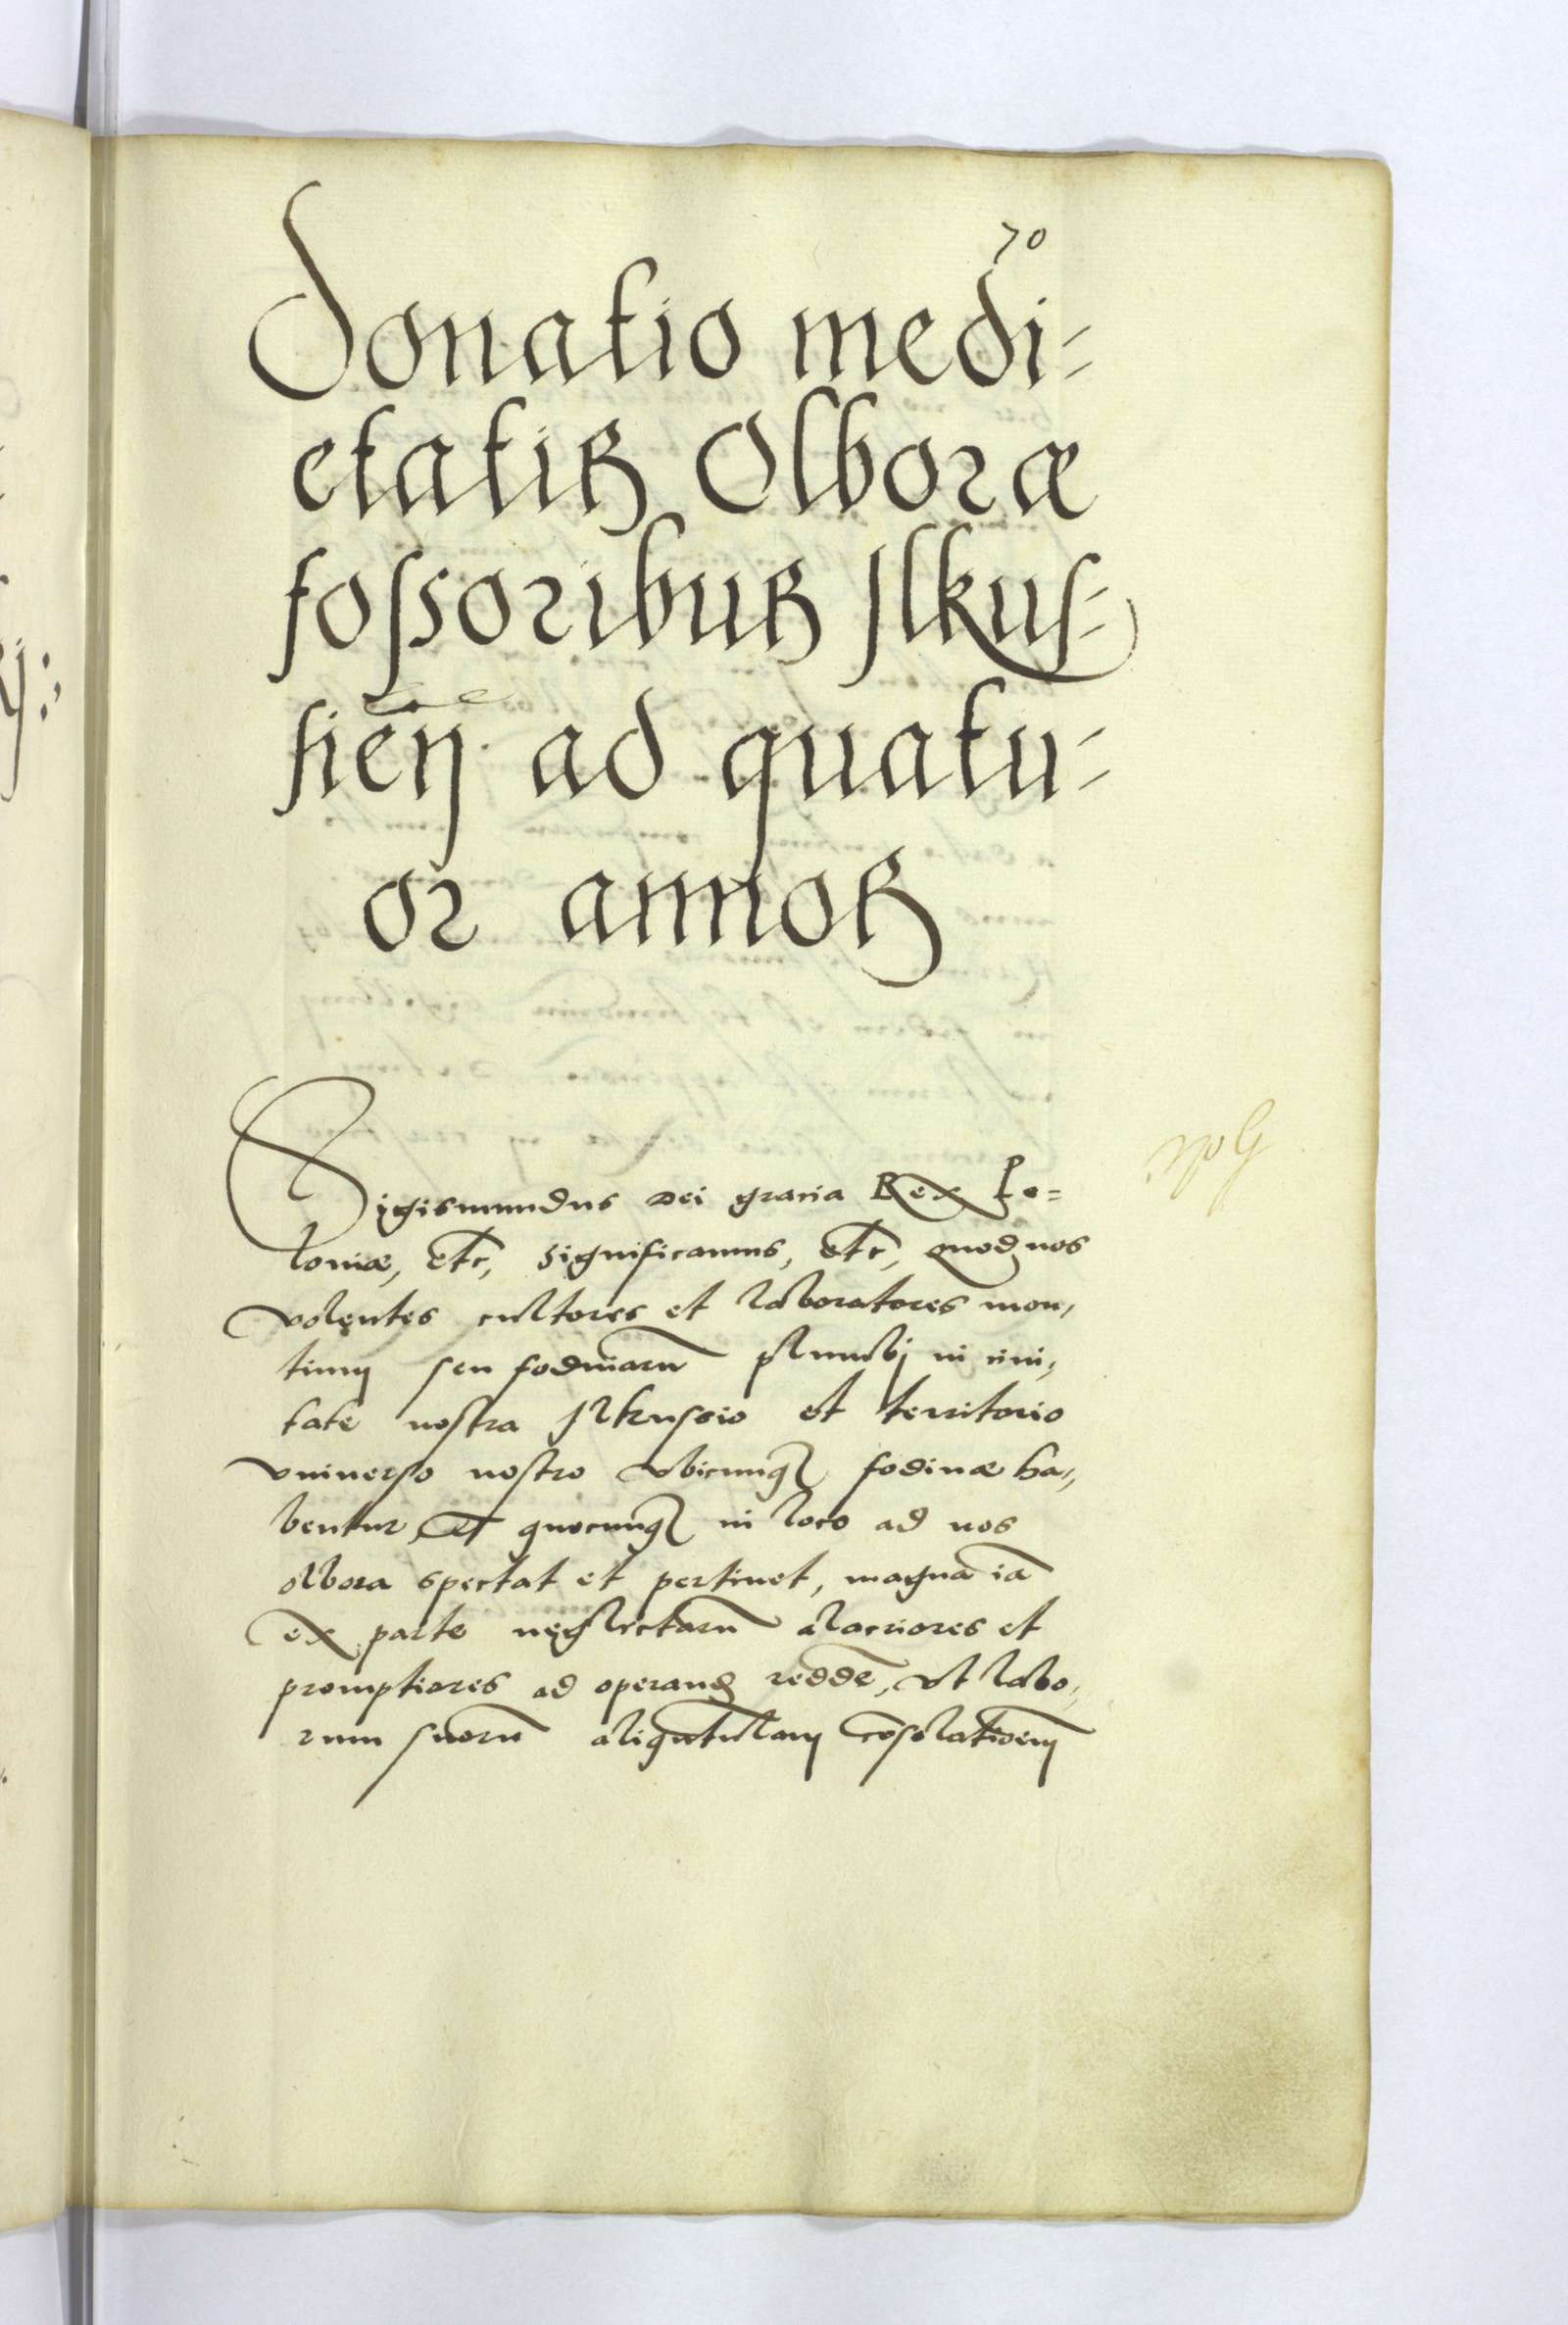 70
Donatio medi-
etatis Olboræ
fossoribus Ilkus-
sień ad quatu-
or annos
Sigismundus Dei gracia Rex Po-
loniæ, etc, significamus, etc, quod nos
volentes cultores et laboratores mon,
tium seu fodinarū plumbj in civi,
tate nostra Ilkussio et territorio
vniuerso nostro vbicunq fodinæ ha,
bentur, et quocunq in loco ad nos
olbora spectat et pertinet, magnā iā
ex parte neglectarū alacriores et
promptiores ad operand redde, vt labo,
rum suorū aliquātulam cōsolationem